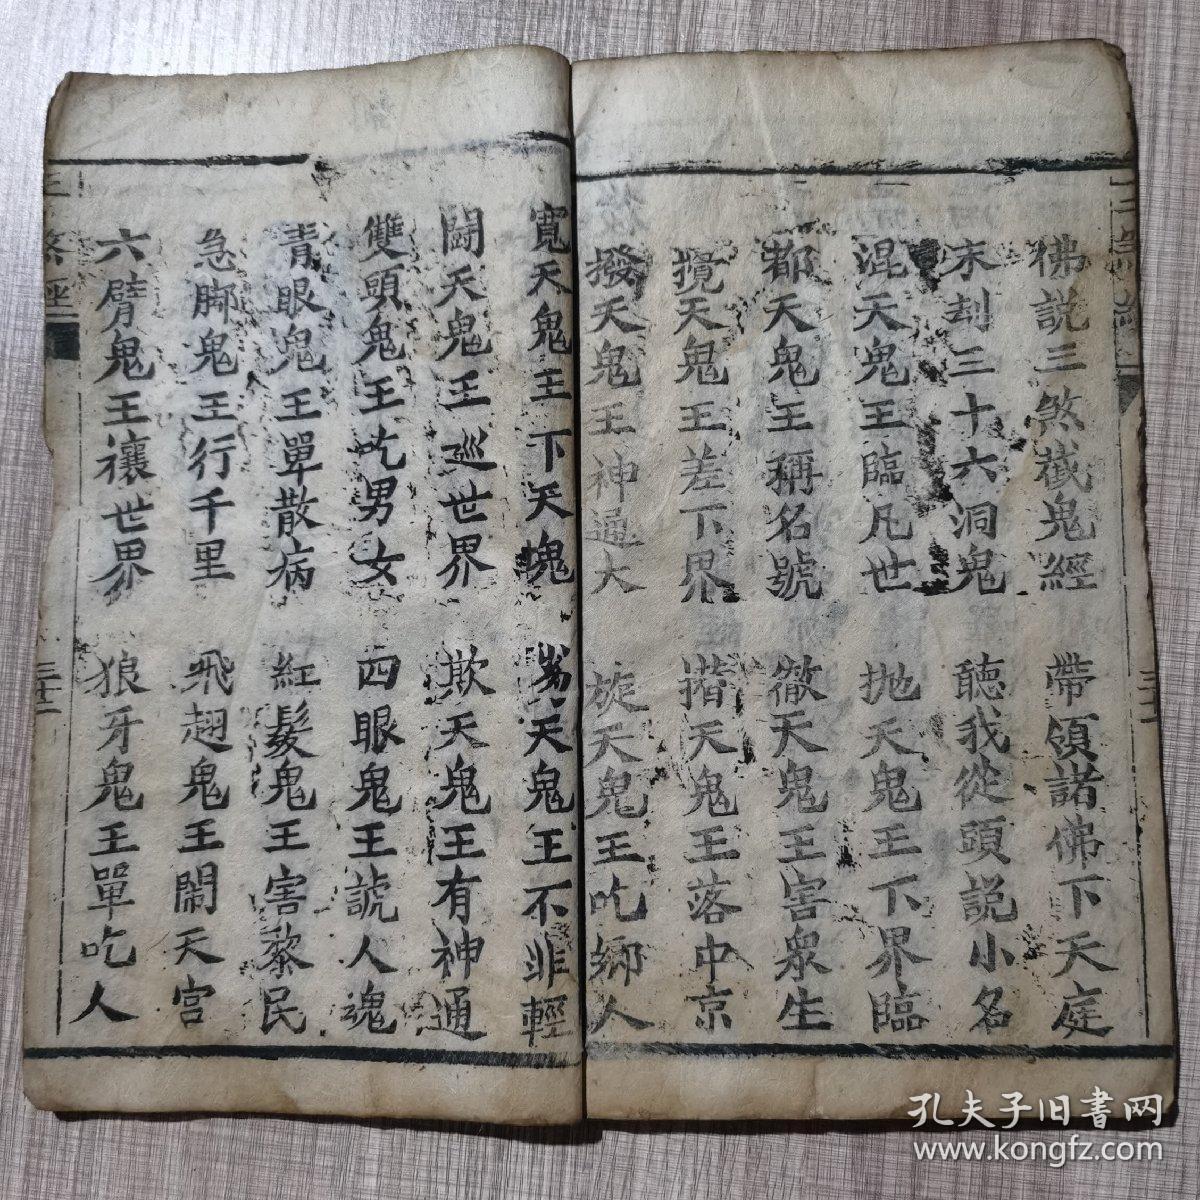 佛説三煞截鬼經 帶領諸佛下天庭
末刦三十六洞鬼 聽我從頭説小名
混天鬼王臨凡世 抛天鬼王下界臨
都天鬼王稱名號 徹天鬼王害衆生
攪天鬼王差下界 撍天鬼王落中京
撥天鬼王神通大 旋天鬼王吃鄉人
寬天鬼王下天塊 天鬼王不非輕
鬪天鬼王巡世界 欺天鬼王有神通
雙頭鬼王吃男女 四眼鬼王諕人魂
青眼鬼王單散病 紅髮鬼王害黎民
急脚鬼王行千里 飛趐鬼王鬧天宫
六臂鬼王禳世界 狼牙鬼王單吃人
孔夫子旧書网
www.kongfz.com